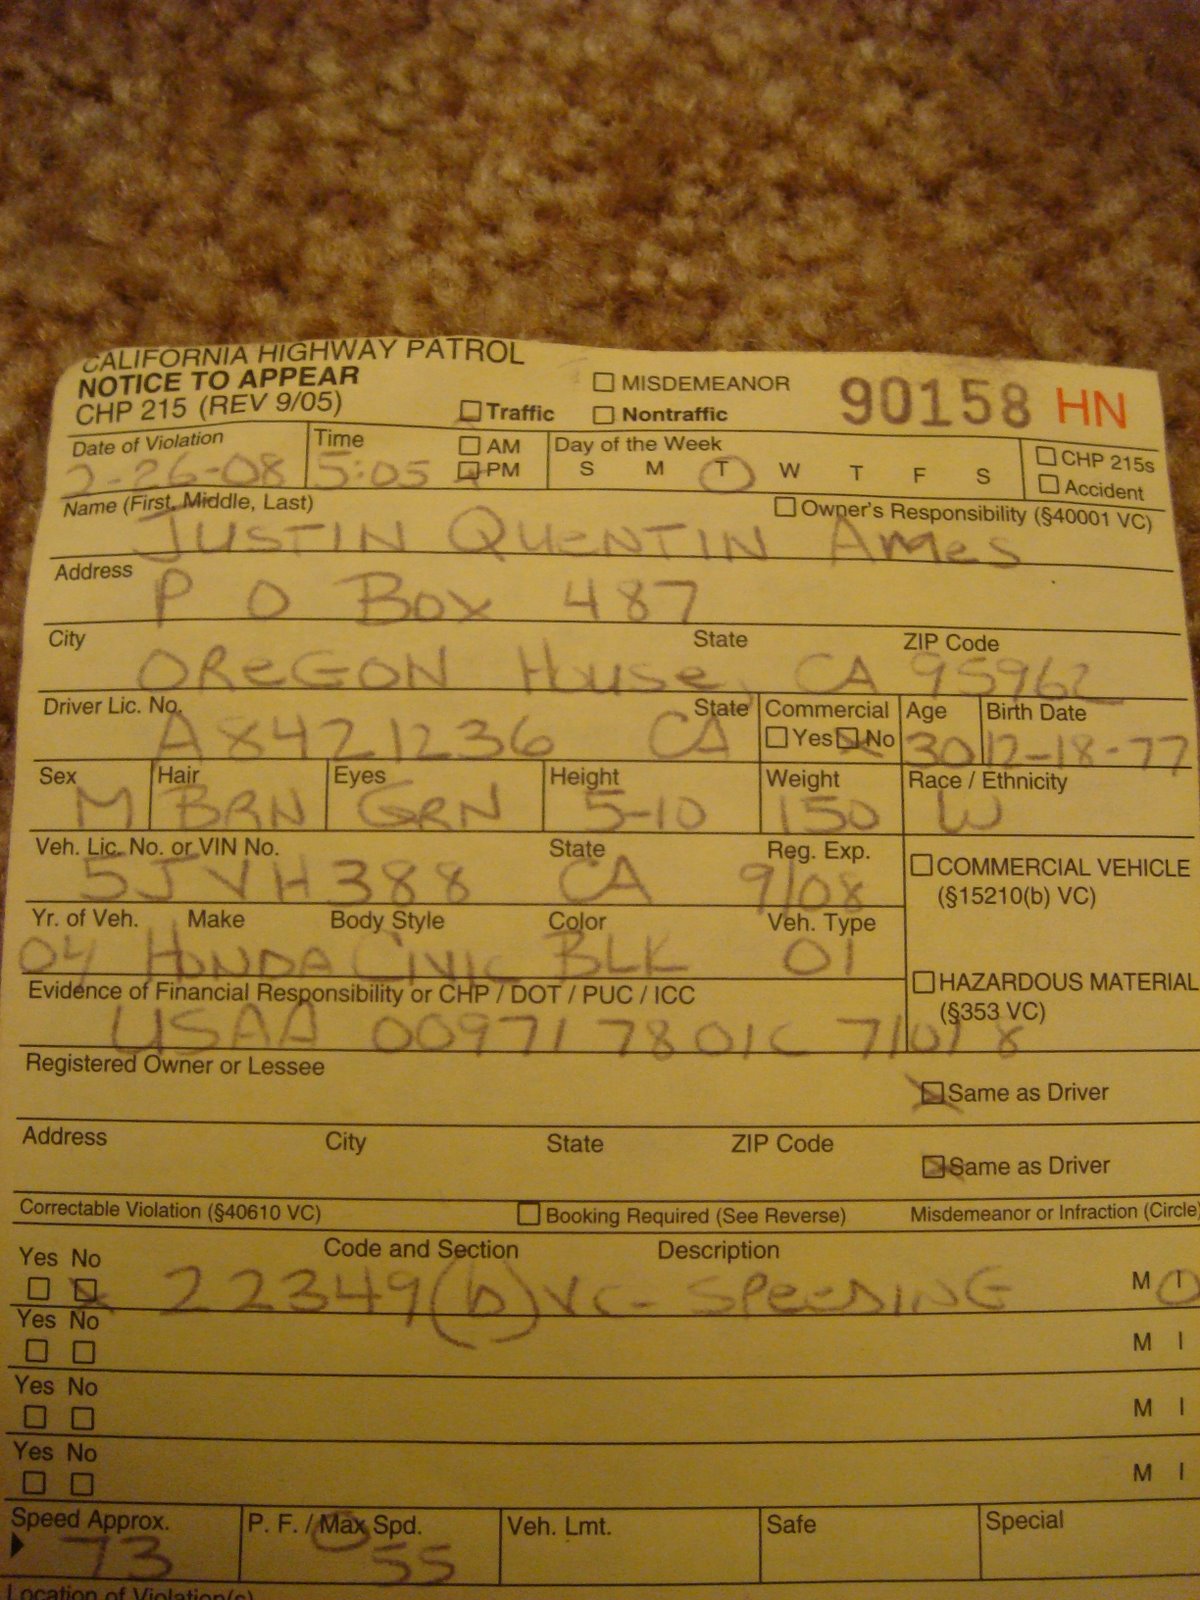 CALIFORNIA HIGHWAY PATROL
NOTICE TO APPEAR
CHP 215 (REV 9/05)
MISDEMEANOR
Traffic Nontraffic
90158 HN
Date of Violation Time AM PM Day of the Week CHP 215s
2-26-08 5:05 S M T W T F S Accident
Name (First, Middle, Last) Owner's Responsibility (§40001 VC)
JUSTIN QUENTIN AMES
Address
P O Box 487
City State ZIP Code
OREGON House, CA 95962
Driver Lic. No. State Commercial Age Birth Date
A8421236 CA Yes No 30 12-18-77
Sex Hair Eyes Height Weight Race / Ethnicity
M BRN GRN 5-10 150 W
Veh. Lic. No. or VIN No. State Reg. Exp.
5JVH388 CA 9/08
COMMERCIAL VEHICLE
(§15210(b) VC)
Yr. of Veh. Make Body Style Color Veh. Type
04 HONDA CIVIC BLK 01
HAZARDOUS MATERIAL
(§353 VC)
Evidence of Financial Responsibility or CHP / DOT / PUC / ICC
USAA 00971 7801C 7101 8
Registered Owner or Lessee
Same as Driver
Address City State ZIP Code
Same as Driver
Correctable Violation (§40610 VC) Booking Required (See Reverse) Misdemeanor or Infraction (Circle)
Yes No Code and Section Description
22349(b) VC- SPEEDING M I
Yes No
M I
Yes No
M I
Yes No
M I
Speed Approx. P. F. / Max Spd. Veh. Lmt. Safe Special
73 55
Location of Violation(s)